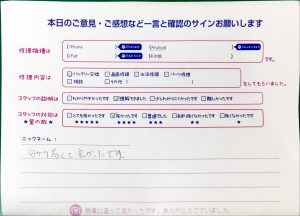 本日のご意見・ご感想など一言と確認のサインお願いします
修理機種は
iPhone
Android
iPad
その他
です。
修理内容は
バッテリー交換 画面修理 水没修理 パーツ修理
相談 その他（ ）
をしてもらいました。
スタッフの説明は
わかりやすかったです 理解できました 少しわかりにくかったです 難しかったです
スタッフの対応は
★星の数★
とても良かったです 良かったです 普通でした あまり良くなかったです 良くなかったです
★★★★★ ★★★★ ★★★ ★★ ★
ニックネーム：
分かり易くて良かったです
無事に直って良かったです。ありがとうございました